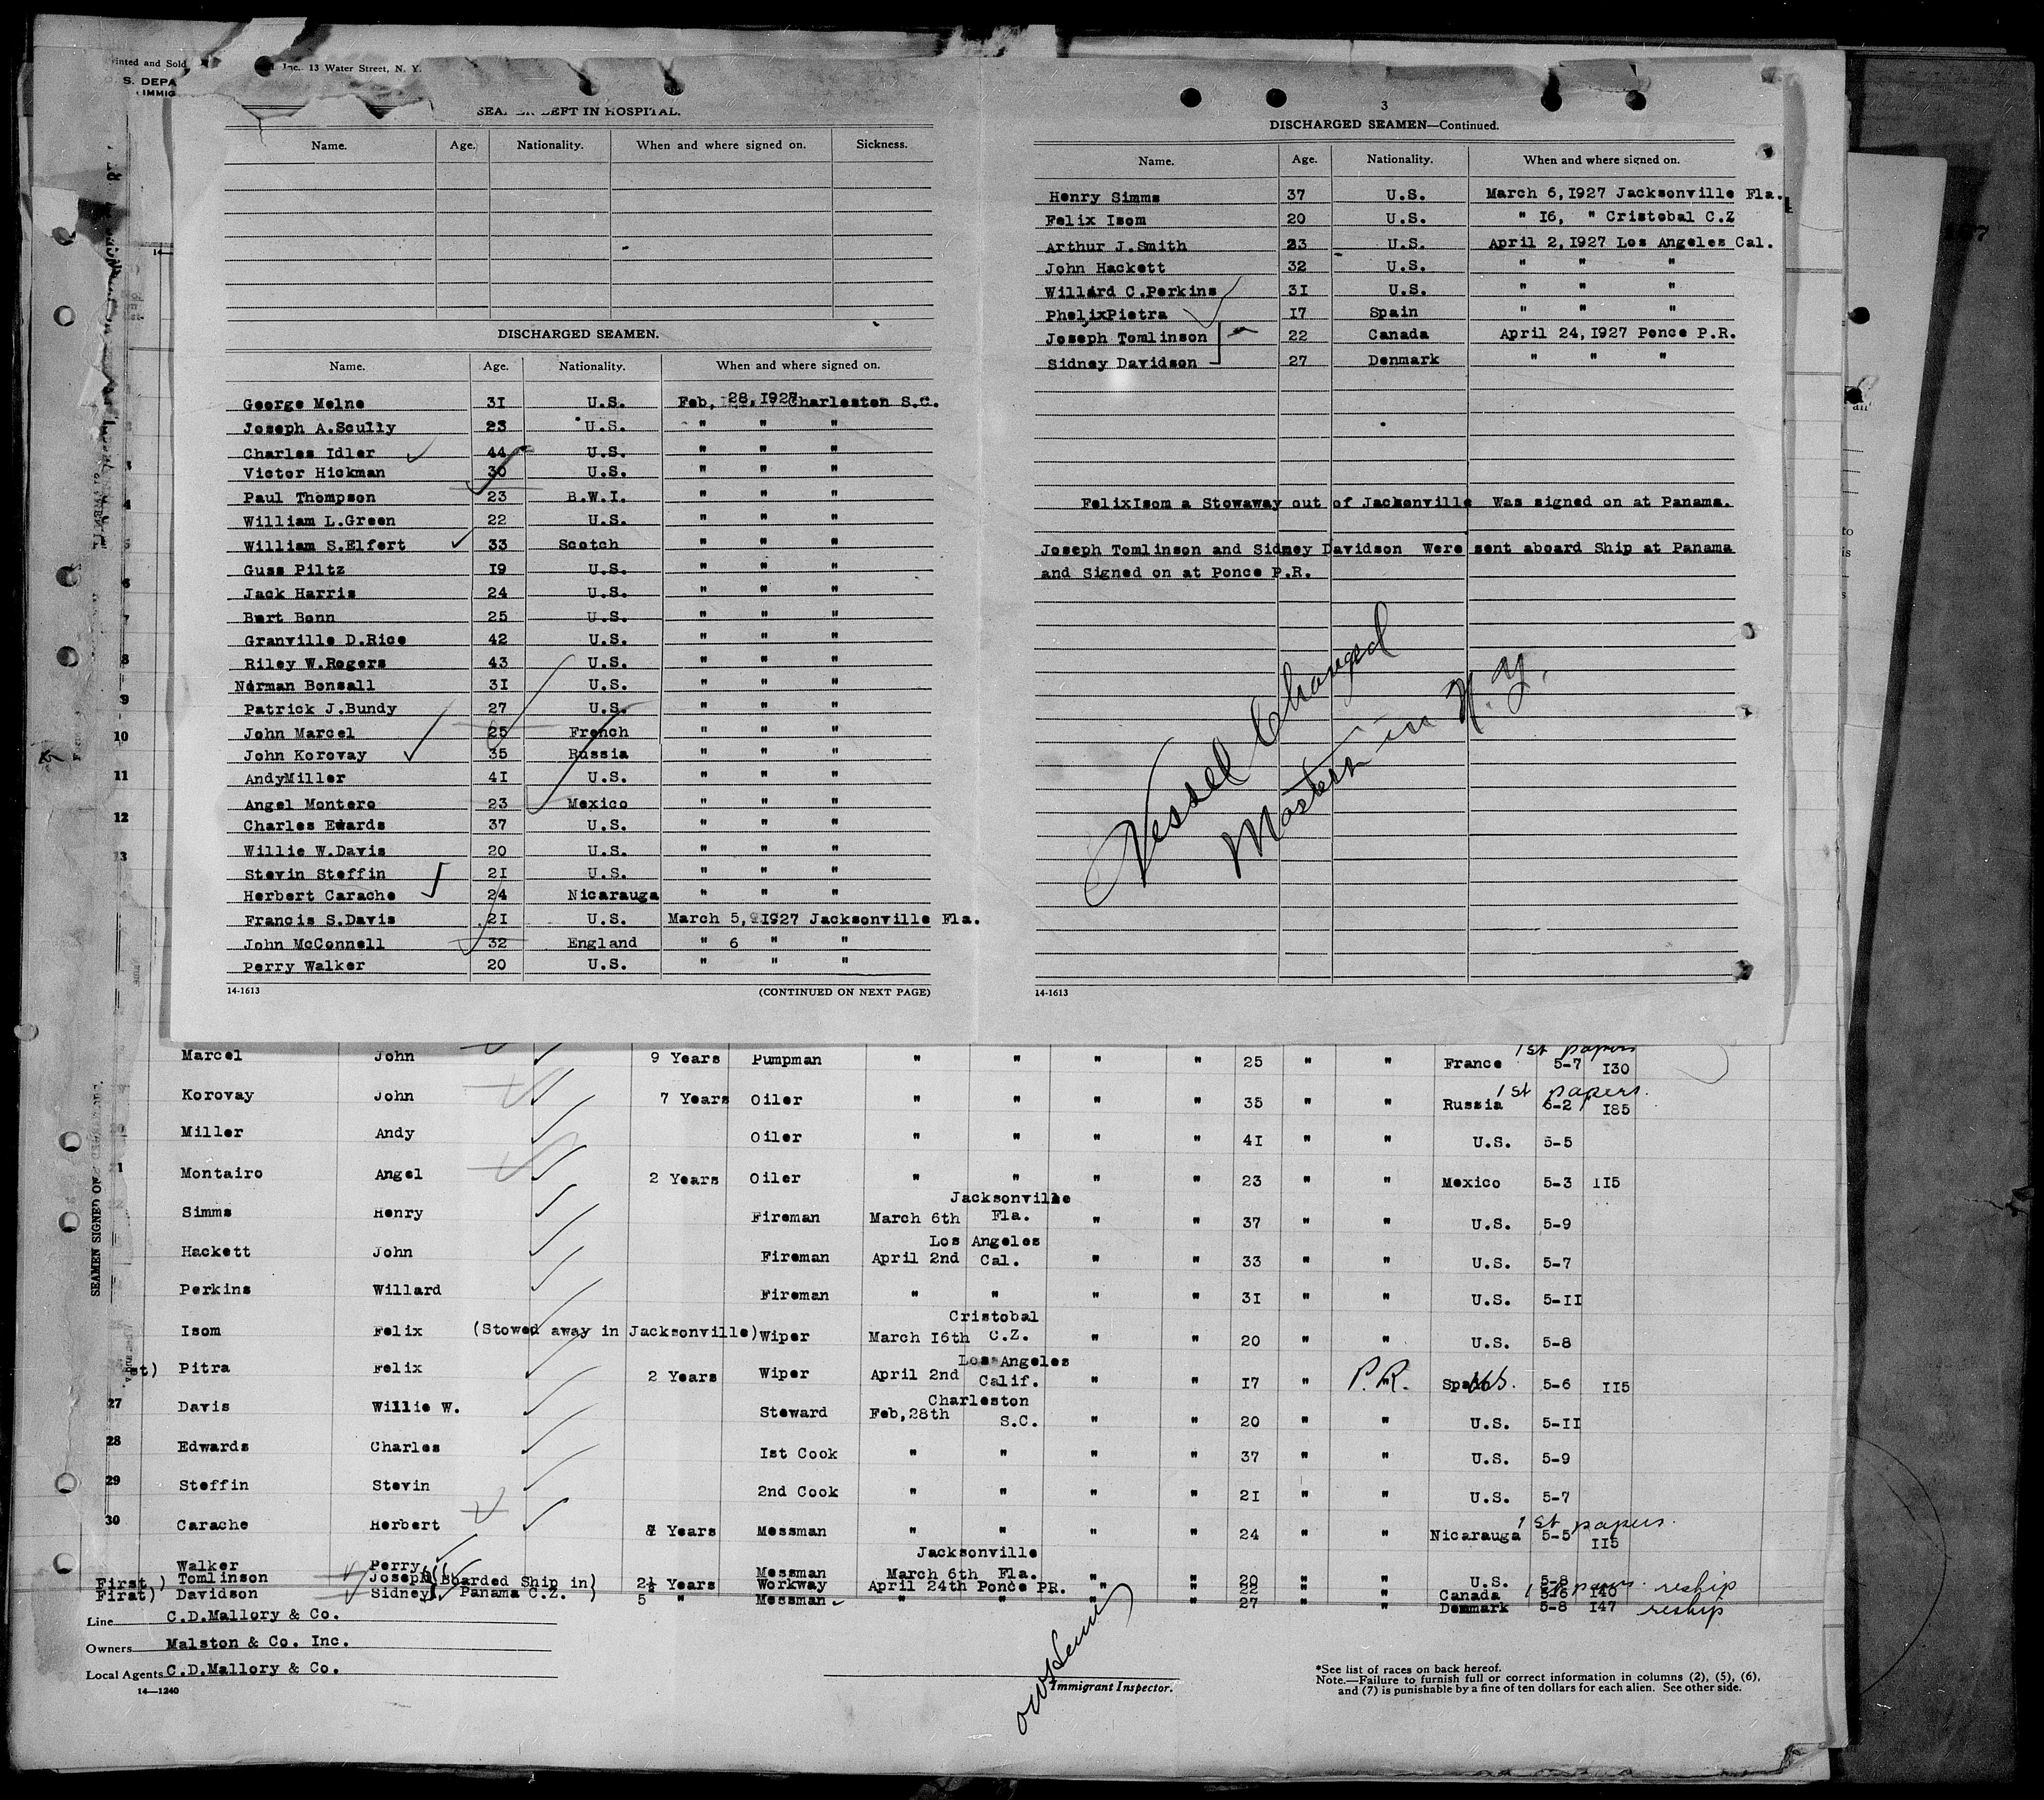 Printed and Sold Inc., 13 Water Street, N. Y.
S. DEPA
IMMIG
SEA LEFT IN HOSPITAL.
Name. Age. Nationality. When and where signed on. Sickness.
DISCHARGED SEAMEN.
Name. Age. Nationality. When and where signed on.
George Melne 31 U.S. Feb, 28, 1927 Charleston S.C.
Joseph A.Scully 23 U.S. " " "
Charles Idler 44 U.S. " " "
Victor Hickman 30 U.S. " " "
Paul Thompson 23 B.W.I. " " "
William L.Green 22 U.S. " " "
William S.Elfert 33 Scotch " " "
Guss Piltz 19 U.S. " " "
Jack Harris 24 U.S. " " "
Bert Bonn 25 U.S. " " "
Granville D.Rice 42 U.S. " " "
Riley W.Rogers 43 U.S. " " "
Norman Bonsall 31 U.S. " " "
Patrick J.Bundy 27 U.S. " " "
John Marcel 25 French " " "
John Korovay 35 Russia " " "
AndyMiller 41 U.S. " " "
Angel Montero 23 Mexico " " "
Charles Edwards 37 U.S. " " "
Willie W.Davis 20 U.S. " " "
Stevin Steffin 21 U.S. " " "
Herbert Carache 24 Nicarauga " " "
Francis S.Davis 21 U.S. March 5, 1927 Jacksonville Fla.
John McConnell 32 England " 6 " "
Perry Walker 20 U.S. " " "
14-1613 (CONTINUED ON NEXT PAGE)
3
DISCHARGED SEAMEN—Continued.
Name. Age. Nationality. When and where signed on.
Henry Simms 37 U.S. March 6, 1927 Jacksonville Fla.
Felix Isom 20 U.S. " 16, " Cristobal C.Z
Arthur J.Smith 23 U.S. April 2, 1927 Los Angeles Cal.
John Hackett 32 U.S. " " "
Willard C.Perkins 31 U.S. " " "
PhelixPietra 17 Spain " " "
Joseph Tomlinson 22 Canada April 24, 1927 Ponce P.R.
Sidney Davidson 27 Denmark " " "
FelixIsom a Stowaway out of Jacksonville Was signed on at Panama.
Joseph Tomlinson and Sidney Davidson Were sent aboard Ship at Panama
and Signed on at Ponce P.R.
Vessel Changed
Masters in N.Y.
14-1613
SEAMEN SIGNED ON
Marcel John 9 Years Pumpman " " " " 25 " " France 5-7 130 1st papers
Korovay John 7 Years Oiler " " " " 35 " " Russia 5-2 185 1st papers.
Miller Andy Oiler " " " " 41 " " U.S. 5-5
Montairo Angel 2 Years Oiler " " " " 23 " " Mexico 5-3 115
Simms Henry Fireman March 6th Jacksonville Fla. " " 37 " " U.S. 5-9
Hackett John Fireman April 2nd Los Angeles Cal. " " 33 " " U.S. 5-7
Perkins Willard Fireman " " " " 31 " " U.S. 5-11
Isom Felix (Stowed away in Jacksonville) Wiper March 16th Cristobal C.Z. " " 20 " " U.S. 5-8
st) Pitra Felix 2 Years Wiper April 2nd Los Angeles Calif. " " 17 " P.R. Spain U.S. 5-6 115
27 Davis Willie W. Steward Feb, 28th Charleston S.C. " " 20 " " U.S. 5-11
28 Edwards Charles 1st Cook " " " " 37 " " U.S. 5-9
29 Steffin Stevin 2nd Cook " " " " 21 " " U.S. 5-7
30 Carache Herbert Years Messman " " " " 24 " " Nicarauga 5-5 115 1st papers.
Walker Perry Messman March 6th Jacksonville Fla. " " 20 " " U.S. 5-8
First) Tomlinson Joseph (Boarded Ship in) 2½ Years Workway April 24th Ponce PR. " " 22 " " Canada 140 reship
First) Davidson Sidney Panama C.Z. ) 5 " Messman " " " " 27 " " Denmark 5-8 147 reship
Line C.D.Mallory & Co.
Owners Malston & Co. Inc.
Local Agents C.D.Mallory & Co.
14—1240
Immigrant Inspector.
*See list of races on back hereof.
Note.—Failure to furnish full or correct information in columns (2), (5), (6),
and (7) is punishable by a fine of ten dollars for each alien. See other side.